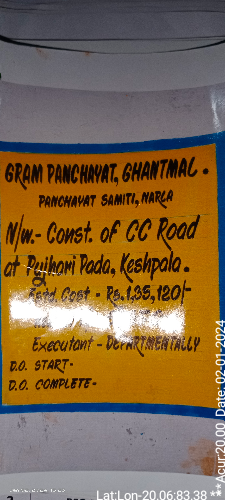 GRAM PANCHAYAT, GHANTMAL.
PANCHAYAT SAMITI, NARLA
N/w.- Const. of CC Road
at Pujhari Pada, Keshpala.
Estd Cost - Rs. 1,35,120/-
Executant - DEPARTMENTALLY
D.O. START-
D.O. COMPLETE-
Lat:Lon-20.06:83.38
**Acur:20.00 Date: 02-01-2024